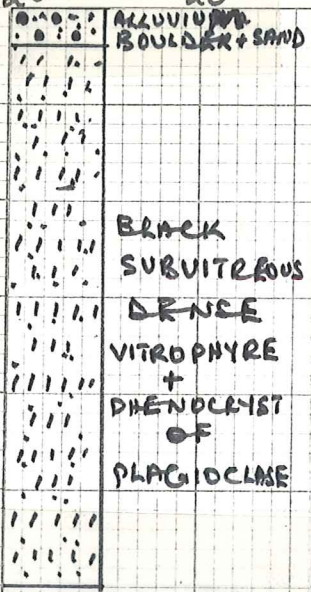 ALLUVIUM
BOULDER + SAND
BLACK
SUBVITREOUS
DENSE
VITROPHYRE
+
PHENOCRYST
OF
PLAGIOCLASE